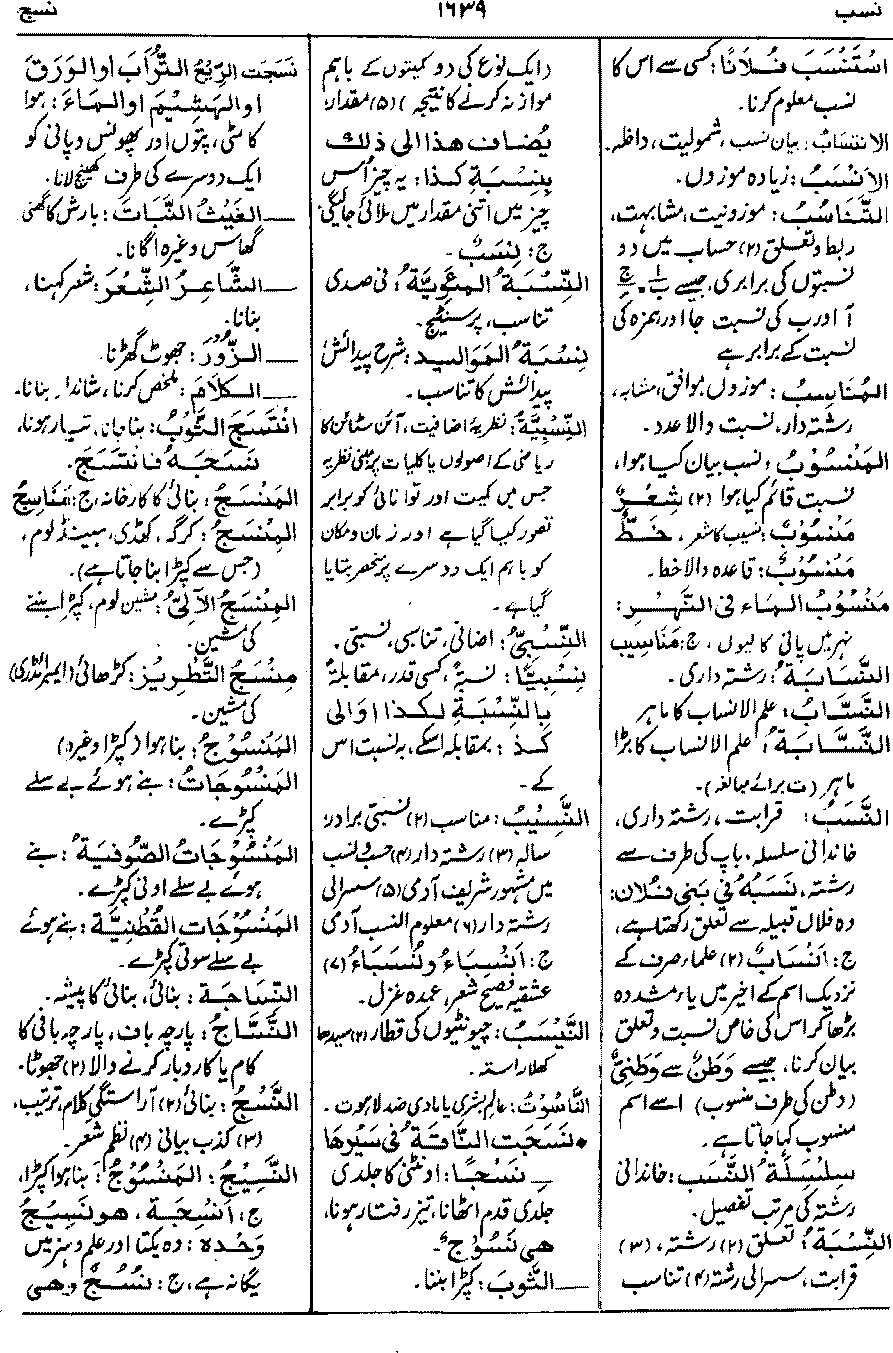 نسب
١٦٣٩
نسج
اسْتَنْسَبَ فُلَانًا: کسی سے اس کا
نسب معلوم کرنا۔
الانتسابُ: بیان نسب، شمولیت، داخلہ۔
الأَنْسَبُ: زیادہ موزوں۔
التَّنَاسُبُ: موزونیت، مشابہت،
ربط و تعلق (۲) حساب میں دو
نسبتوں کی برابری، جیسے
آ اور ب کی نسبت جا اور ہمزہ کی
نسبت کے برابر ہے
المُنَاسِبُ: موزوں، موافق، مشابہ،
رشتہ دار، نسبت والا عدد۔
المَنْسُوْبُ: نسب بیان کیا ہوا،
نسبت قائم کیا ہوا (۲) شِعْرٌ
مَنْسُوْبٌ: نسیب کا شعر، خَطٌّ
مَنْسُوْبٌ: قاعدہ والا خط۔
مَنْسُوْبُ الماء فی النَّهْرِ:
نہر میں پانی کا لیول، ج: مَنَاسِیب
النَّسَابَةُ: رشتہ داری۔
النَّسَّابُ: علم الانساب کا ماہر
النَّسَّابَةُ: علم الانساب کا بڑا
ماہر (ت برائے مبالغہ)۔
النَّسَبُ: قرابت، رشتہ داری،
خاندانی سلسلہ، باپ کی طرف سے
رشتہ، نَسَبُهُ فی بَنی فُلان:
وہ فلاں قبیلہ سے تعلق رکھتا ہے،
ج: اَنْسَابٌ (۲) علماء صرف کے
نزدیک اسم کے اخیر میں یاء مشددہ
بڑھا کر اس کی خاص نسبت و تعلق
بیان کرنا، جیسے وَطَنٌ سے وَطَنِیٌّ
(وطن کی طرف منسوب) اسے اسم
منسوب کہا جاتا ہے۔
سِلْسِلَةُ النَّسَب: خاندانی
رشتہ کی مرتب تفصیل۔
النِّسْبَةُ: تعلق (۲) رشتہ، (۳)
قرابت، سسرالی رشتہ (۴) تناسب
(ایک نوع کی دو کمیتوں کے باہم
موازنہ کرنے کا نتیجہ) (۵) مقدار،
یُضَاف هذا الی ذلك
بِنِسْبَةِ كذا: یہ چیز اُس
چیز میں اتنی مقدار میں ملائی جائیگی
ج: نِسَبٌ۔
النِّسْبَةُ المِئَوِیَّةُ: فی صدی
تناسب، پرسنٹیج۔
نِسْبَةُ المَوَالید: شرح پیدائش
پیدائش کا تناسب۔
النِّسْبِیَّةُ: نظریۂ اضافیت، آئن سٹائن کا
ریاضی کے اصولوں یا کلیات پر مبنی نظریہ
جس میں کمیت اور توانائی کو برابر
تصور کیا گیا ہے اور زمان و مکان
کو باہم ایک دوسرے پر منحصر بتایا
گیا ہے۔
النِّسْبِیُّ: اضافی، تناسبی، نسبتی۔
نِسْبِیًّا: نسبۃً، کسی قدر، مقابلۃً
بِالنِّسْبَةِ لكذا او الی
كذ: بمقابلہ اسکے، بہ نسبت اس
کے۔
النَّسِیْبُ: مناسب (۲) نسبتی برادر،
سالہ (۳) رشتہ دار (۴) حسب و نسب
میں مشہور شریف آدمی (۵) سسرالی
رشتہ دار (۶) معلوم النسب آدمی
ج: اَنْسِبَاءُ و نُسَبَاءُ (۷)
عشقیہ فصیح شعر، عمدہ غزل۔
النَّیْسَبُ: چیونٹیوں کی قطار (۲) سیدھا
کھلا راستہ۔
النَّاسُوْتُ: عالم بشری یا مادی ضد لاہوت۔
•نَسَجَت النَّاقَةُ فی سَیْرِهَا
ــِ نَسْجًا: اونٹنی کا جلدی
جلدی قدم اٹھانا، تیز رفتار ہونا،
هی نَسُوْجٌ۔
ــــ الثَّوبَ: کپڑا بننا۔
نَسَجَت الرِّیْحُ التُّرَابَ او الوَرَقَ
او الهَشِیْمَ او الماءَ: ہوا
کا مٹی، پتوں اور پھونس و پانی کو
ایک دوسرے کی طرف کھینچ لانا۔
ــــ الغَیْثُ النَّبَاتَ: بارش کا گھنی
گھاس وغیرہ اگانا۔
ــــ الشَّاعِرُ الشِّعْرَ: شعر کہنا،
بنانا۔
ــــ الزُّوْرَ: جھوٹ گھڑنا۔
ــــ الكلامَ: ملخص کرنا، شاندار بنانا۔
انْتَسَجَ الثَّوْبُ: بنا جانا، تیار ہونا،
نَسَجَهُ فَانْتَسَجَ۔
المَنْسَجُ: بنائی کا کارخانہ، ج: مَنَاسِجُ
المِنْسَجُ: کرگہ، کھڈی، ہینڈ لوم،
(جس سے کپڑا بنا جاتا ہے)۔
المِنْسَجُ الآلیُّ: مشین لوم، کپڑا بننے
کی مشین۔
مِنْسَجُ التَّطْرِیْز: کڑھائی (ایمبرائڈری)
کی مشین۔
المَنْسُوْجُ: بنا ہوا (کپڑا وغیرہ)
المَنْسُوْجَاتُ: بنے ہوئے بے سلے
کپڑے۔
المَنْسُوْجَاتُ الصُّوفیَةُ: بنے
ہوئے بے سلے اونی کپڑے۔
المَنْسُوْجَاتُ القُطْنِیَّةُ: بنے ہوئے
بے سلے سوتی کپڑے۔
النِّسَاجَةُ: بنائی، بنائی کا پیشہ۔
النَّسَّاجُ: پارچہ باف، پارچہ بافی کا
کام یا کاروبار کرنے والا (۲) جھوٹا۔
النَّسْجُ: بنائی (۲) آراستگی کلام، ترتیب،
(۳) کذب بیانی (۴) نظم شعر۔
النَّسِیْجُ: المَنْسُوْجُ: بنا ہوا کپڑا،
ج: اَنْسِجَة، هو نَسِیْجُ
وَحْدِهِ: وہ یکتا اور علم و ہنر میں
یگانہ ہے، ج: نُسُجٌ و هی